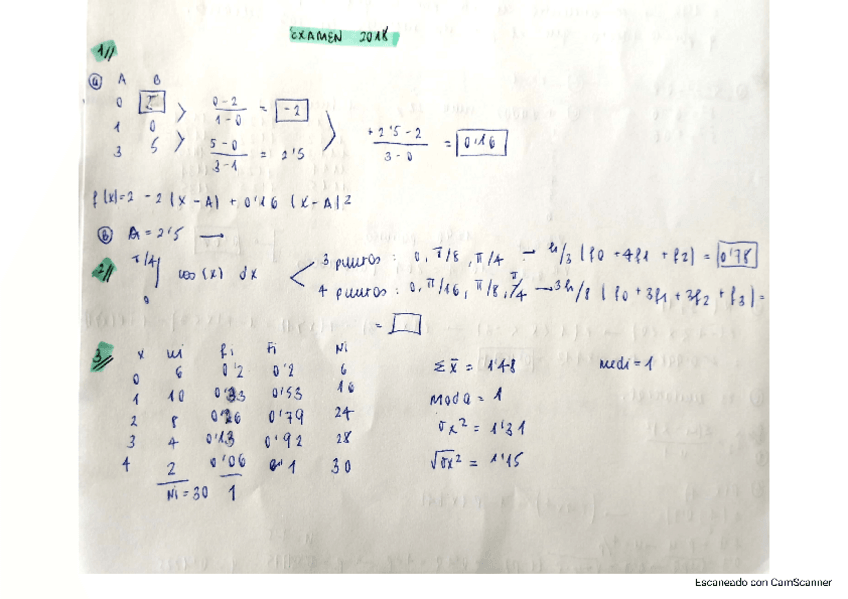 EXAMEN 2018
1//
a A B
0 2 > 0-2 / 1-0 = -2
1 0 > +2'5-2 / 3-0 = 0'16
3 5 > 5-0 / 3-1 = 2'5
f(x)=2 -2(x-A) + 0'16 (x-A)2
b A = 2'5 →
2// π/4 ∫ 0 cos(x) dx < 3 puntos: 0, π/8, π/4 → h/3 (f0 +4f1 + f2) = 0'78
4 puntos: 0, π/16, π/8, π/4 → 3h/8 (f0 + 3f1 + 3f2 + f3) =
=
3// x ni fi Fi Ni
0 6 0'2 0'2 6 Σ x̄ = 1'48 medi = 1
1 10 0'33 0'53 16
2 8 0'26 0'79 24 moda = 1
3 4 0'13 0'92 28 σx2 = 1'31
4 2 0'06 1 30 √σx2 = 1'15
Ni = 30 1
Escaneado con CamScanner